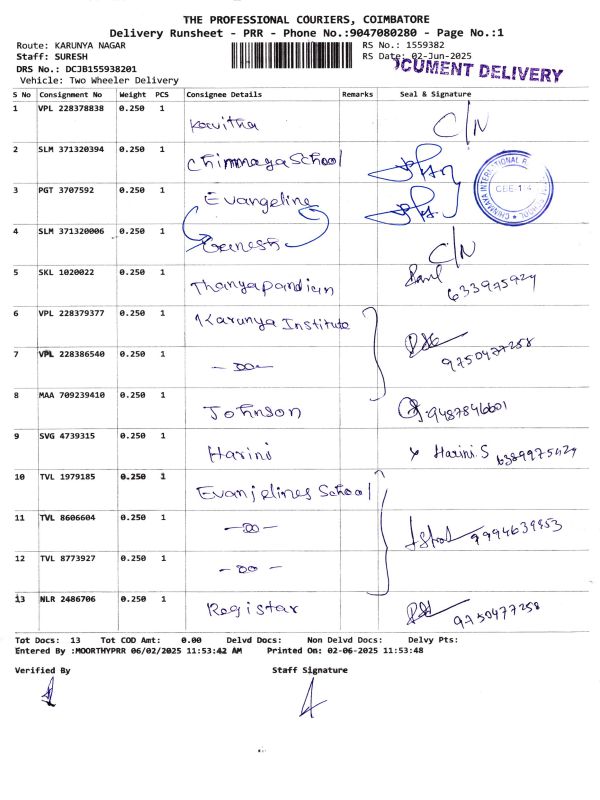 THE PROFESSIONAL COURIERS, COIMBATORE
Delivery Runsheet - PRR - Phone No.:9047080280 - Page No.:1
Route: KARUNYA NAGAR RS No.: 1559382
Staff: SURESH RS Date: 02-Jun-2025
DRS No.: DCJB155938201 CUMENT DELIVERY
Vehicle: Two Wheeler Delivery
S No Consignment No Weight PCS Consignee Details Remarks Seal & Signature
1 VPL 228378838 0.250 1 Kavitha C/N
2 SLM 371320394 0.250 1 Chinmaya School
3 PGT 3707592 0.250 1 Evangeline
CHINMAYA INTERNATIONAL SCHOOL CBE-1
4 SLM 371320006 0.250 1 Ganesh C/N
5 SKL 1020022 0.250 1 Thanyapandian
6 VPL 228379377 0.250 1 Karunya Institute
7 VPL 228386540 0.250 1 -do- 9750477258
8 MAA 709239410 0.250 1 Johnson 9487846601
9 SVG 4739315 0.250 1 Harini x Harini.S 6389975429
10 TVL 1979185 0.250 1 Evanjelines School
11 TVL 8606604 0.250 1 -do- 9994639953
12 TVL 8773927 0.250 1 -do-
13 NLR 2486706 0.250 1 Registar 9750477258
Tot Docs: 13 Tot COD Amt: 0.00 Delvd Docs: Non Delvd Docs: Delvy Pts:
Entered By :MOORTHYPRR 06/02/2025 11:53:42 AM Printed On: 02-06-2025 11:53:48
Verified By Staff Signature